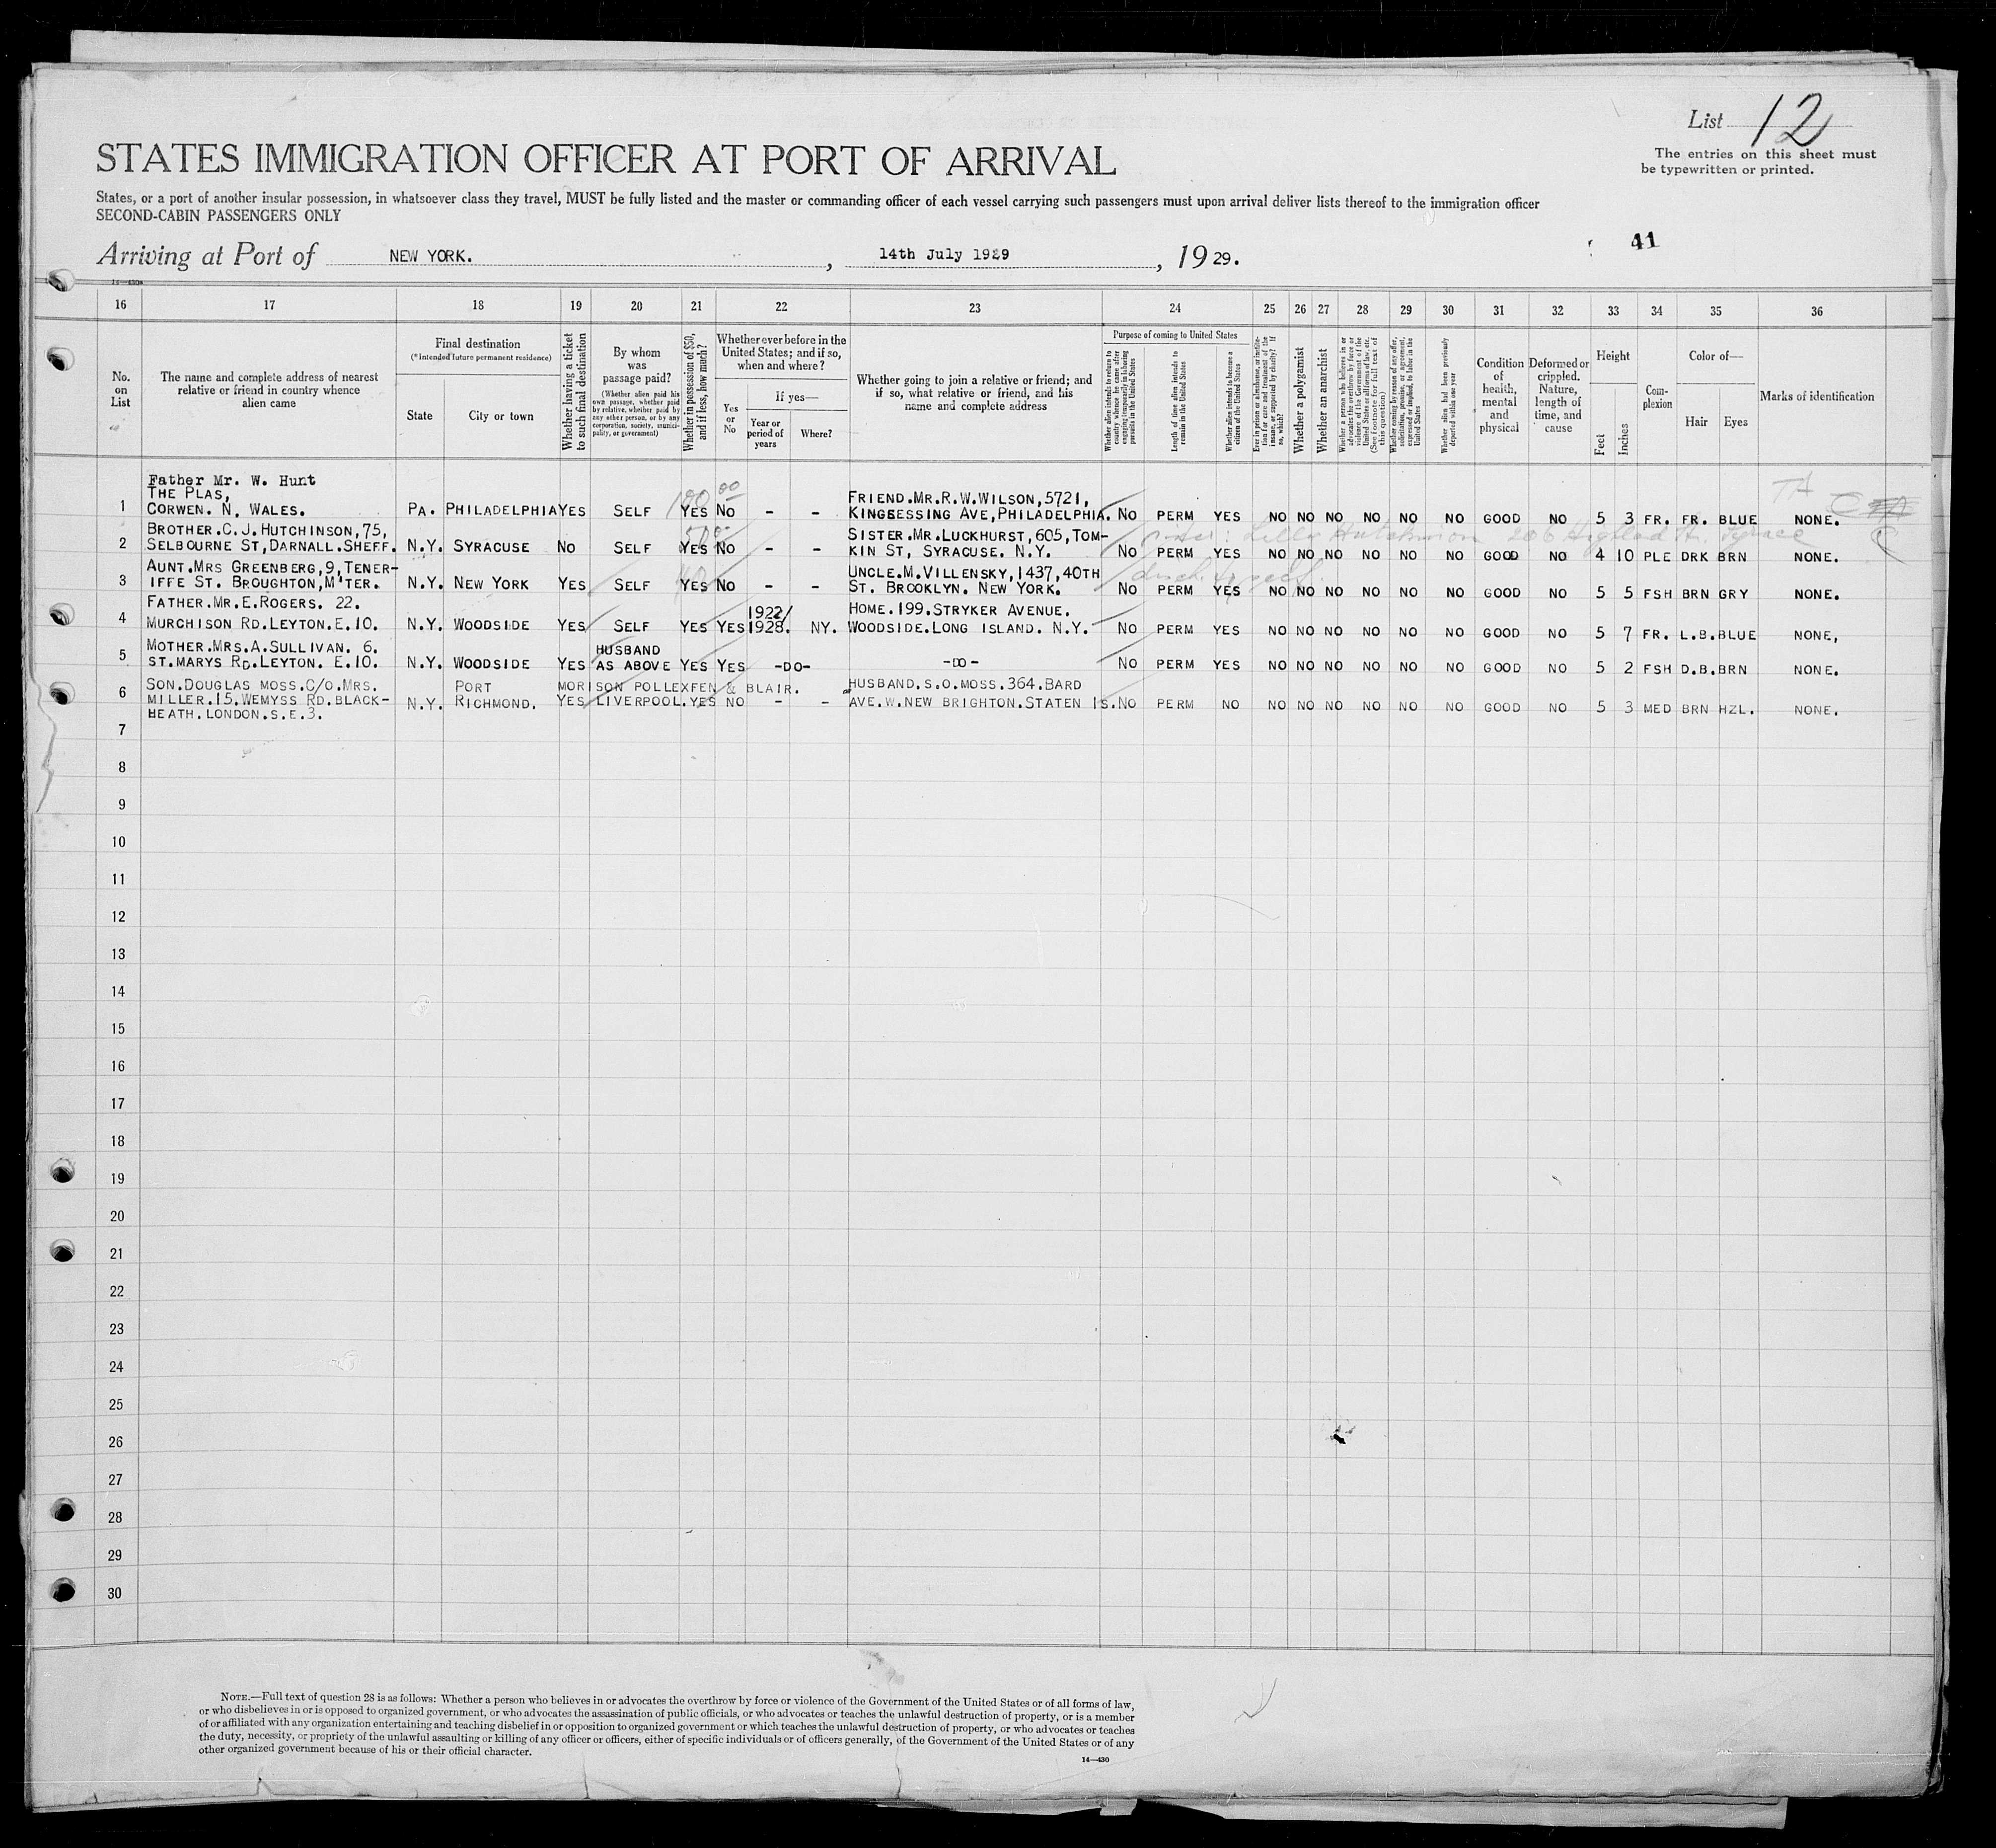 List 12
The entries on this sheet must
be typewritten or printed.
STATES IMMIGRATION OFFICER AT PORT OF ARRIVAL
States, or a port of another insular possession, in whatsoever class they travel, MUST be fully listed and the master or commanding officer of each vessel carrying such passengers must upon arrival deliver lists thereof to the immigration officer
SECOND-CABIN PASSENGERS ONLY
Arriving at Port of NEW YORK. , 14th July 1929 , 19 29.
41
16 17 18 19 20 21 22 23 24 25 26 27 28 29 30 31 32 33 34 35 36
No.
on
List
The name and complete address of nearest
relative or friend in country whence
alien came
Final destination
(*Intended future permanent residence)
State
City or town
Whether having a ticket
to such final destination
By whom
was
passage paid?
(Whether alien paid his
own passage, whether paid
by relative, whether paid by
any other person, or by any
corporation, society, munici-
pality, or government)
Whether in possession of $50,
and if less, how much?
Whether ever before in the
United States; and if so,
when and where?
If yes—
Yes
or
No
Year or
period of
years
Where?
Whether going to join a relative or friend; and
if so, what relative or friend, and his
name and complete address
Purpose of coming to United States
Whether alien intends to return to
country whence he came after
engaging temporarily in laboring
pursuits in the United States
Length of time alien intends to
remain in the United States
Whether alien intends to become a
citizen of the United States
Ever in prison or almshouse, or institu-
tion for care and treatment of the
insane, or supported by charity? If
so, which?
Whether a polygamist
Whether an anarchist
Whether a person who believes in or
advocates the overthrow by force or
violence of the Government of the
United States or all forms of law, etc.
(See footnote for full text of
this question)
Whether coming by reason of any offer,
solicitation, promise, or agreement,
expressed or implied, to labor in the
United States
Whether alien had been previously
deported within one year
Condition
of
health,
mental
and
physical
Deformed or
crippled.
Nature,
length of
time, and
cause
Height
Feet
Inches
Com-
plexion
Color of—
Hair
Eyes
Marks of identification
Father Mr. W. Hunt
THE PLAS,
1 CORWEN. N. WALES. PA. PHILADELPHIA YES SELF YES NO - - FRIEND.MR.R.W.WILSON,5721,
KINGSESSING AVE,PHILADELPHIA. NO PERM YES NO NO NO NO NO NO GOOD NO 5 3 FR. FR. BLUE NONE.
BROTHER.C.J.HUTCHINSON,75,
2 SELBOURNE ST,DARNALL.SHEFF. N.Y. SYRACUSE NO SELF YES NO - - SISTER.MR.LUCKHURST,605,TOM-
KIN ST, SYRACUSE. N.Y. NO PERM YES NO NO NO NO NO NO GOOD NO 4 10 PLE DRK BRN NONE.
AUNT.MRS GREENBERG,9,TENER-
3 IFFE ST. BROUGHTON,M'TER. N.Y. NEW YORK YES SELF YES NO - - UNCLE.M.VILLENSKY,1437,40TH
ST. BROOKLYN. NEW YORK. NO PERM YES NO NO NO NO NO NO GOOD NO 5 5 FSH BRN GRY NONE.
FATHER.MR.E.ROGERS. 22.
4 MURCHISON RD.LEYTON.E.10. N.Y. WOODSIDE YES SELF YES YES 1922/
1928. NY. HOME.199.STRYKER AVENUE.
WOODSIDE.LONG ISLAND. N.Y. NO PERM YES NO NO NO NO NO NO GOOD NO 5 7 FR. L.B.BLUE NONE,
MOTHER.MRS.A.SULLIVAN. 6.
5 ST.MARYS RD.LEYTON. E.10. N.Y. WOODSIDE YES HUSBAND
AS ABOVE YES YES -DO- -DO- NO PERM YES NO NO NO NO NO NO GOOD NO 5 2 FSH D.B.BRN NONE.
SON.DOUGLAS MOSS.C/O.MRS. PORT MORISON POLLEXFEN & BLAIR. HUSBAND.S.O.MOSS.364.BARD
6 MILLER.15.WEMYSS RD.BLACK- N.Y. RICHMOND. YES LIVERPOOL. YES NO - - AVE.W.NEW BRIGHTON.STATEN IS. NO PERM NO NO NO NO NO NO NO GOOD NO 5 3 MED BRN HZL. NONE.
HEATH.LONDON.S.E.3.
7
8
9
10
11
12
13
14
15
16
17
18
19
20
21
22
23
24
25
26
27
28
29
30
NOTE.—Full text of question 28 is as follows: Whether a person who believes in or advocates the overthrow by force or violence of the Government of the United States or of all forms of law,
or who disbelieves in or is opposed to organized government, or who advocates the assassination of public officials, or who advocates or teaches the unlawful destruction of property, or is a member
of or affiliated with any organization entertaining and teaching disbelief in or opposition to organized government or which teaches the unlawful destruction of property, or who advocates or teaches
the duty, necessity, or propriety of the unlawful assaulting or killing of any officer or officers, either of specific individuals or of officers generally, of the Government of the United States or of any
other organized government because of his or their official character.
14—430